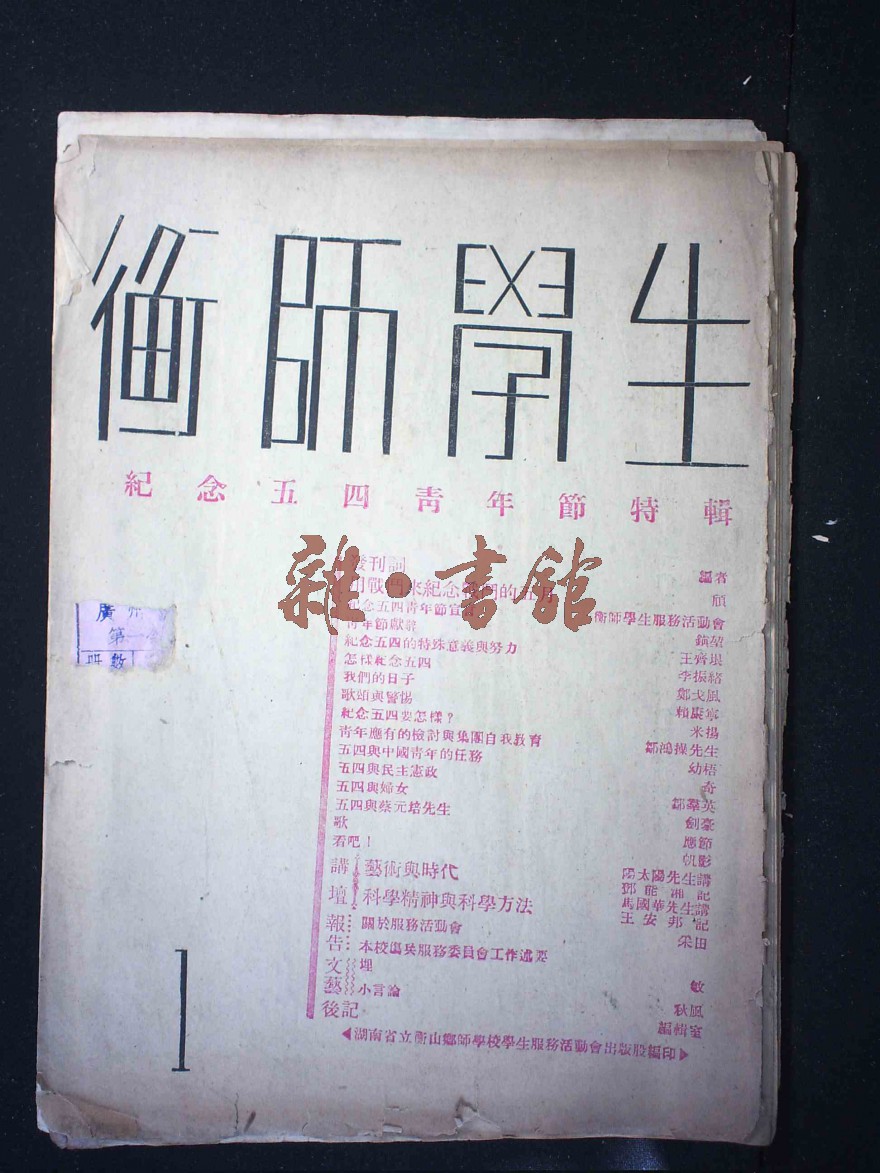 衡師學生
紀念五四青年節特輯
發刊詞 編者
用戰鬥來紀念戰鬥的五月 頎
紀念五四青年節宣言 衡師學生服務活動會
青年節獻辭
紀念五四的特殊意義與努力 王齊琅
怎樣紀念五四 李振緒
我們的日子 鄭戈風
歌頌與警惕 賴
紀念五四要怎樣? 米揚
青年應有的檢討與集團自我教育 鄒鴻操先生
五四與中國青年的任務 幼梧
五四與民主憲政 奇
五四與婦女 鄒羣英
五四與蔡元培先生 劍豪
歌 應節
看吧! 帆影
講壇
藝術與時代 陽太陽先生講
鄧能湘記
科學精神與科學方法 馬國華先生講
王安邦記
報告
關於服務活動會 采田
本校傷兵服務委員會工作述要
文藝
埋 敏
小言論 秋風
後記 編輯室
◀湖南省立衡山鄉師學校學生服務活動會出版股編印▶
1
廣州
第一
冊數
雜·書館